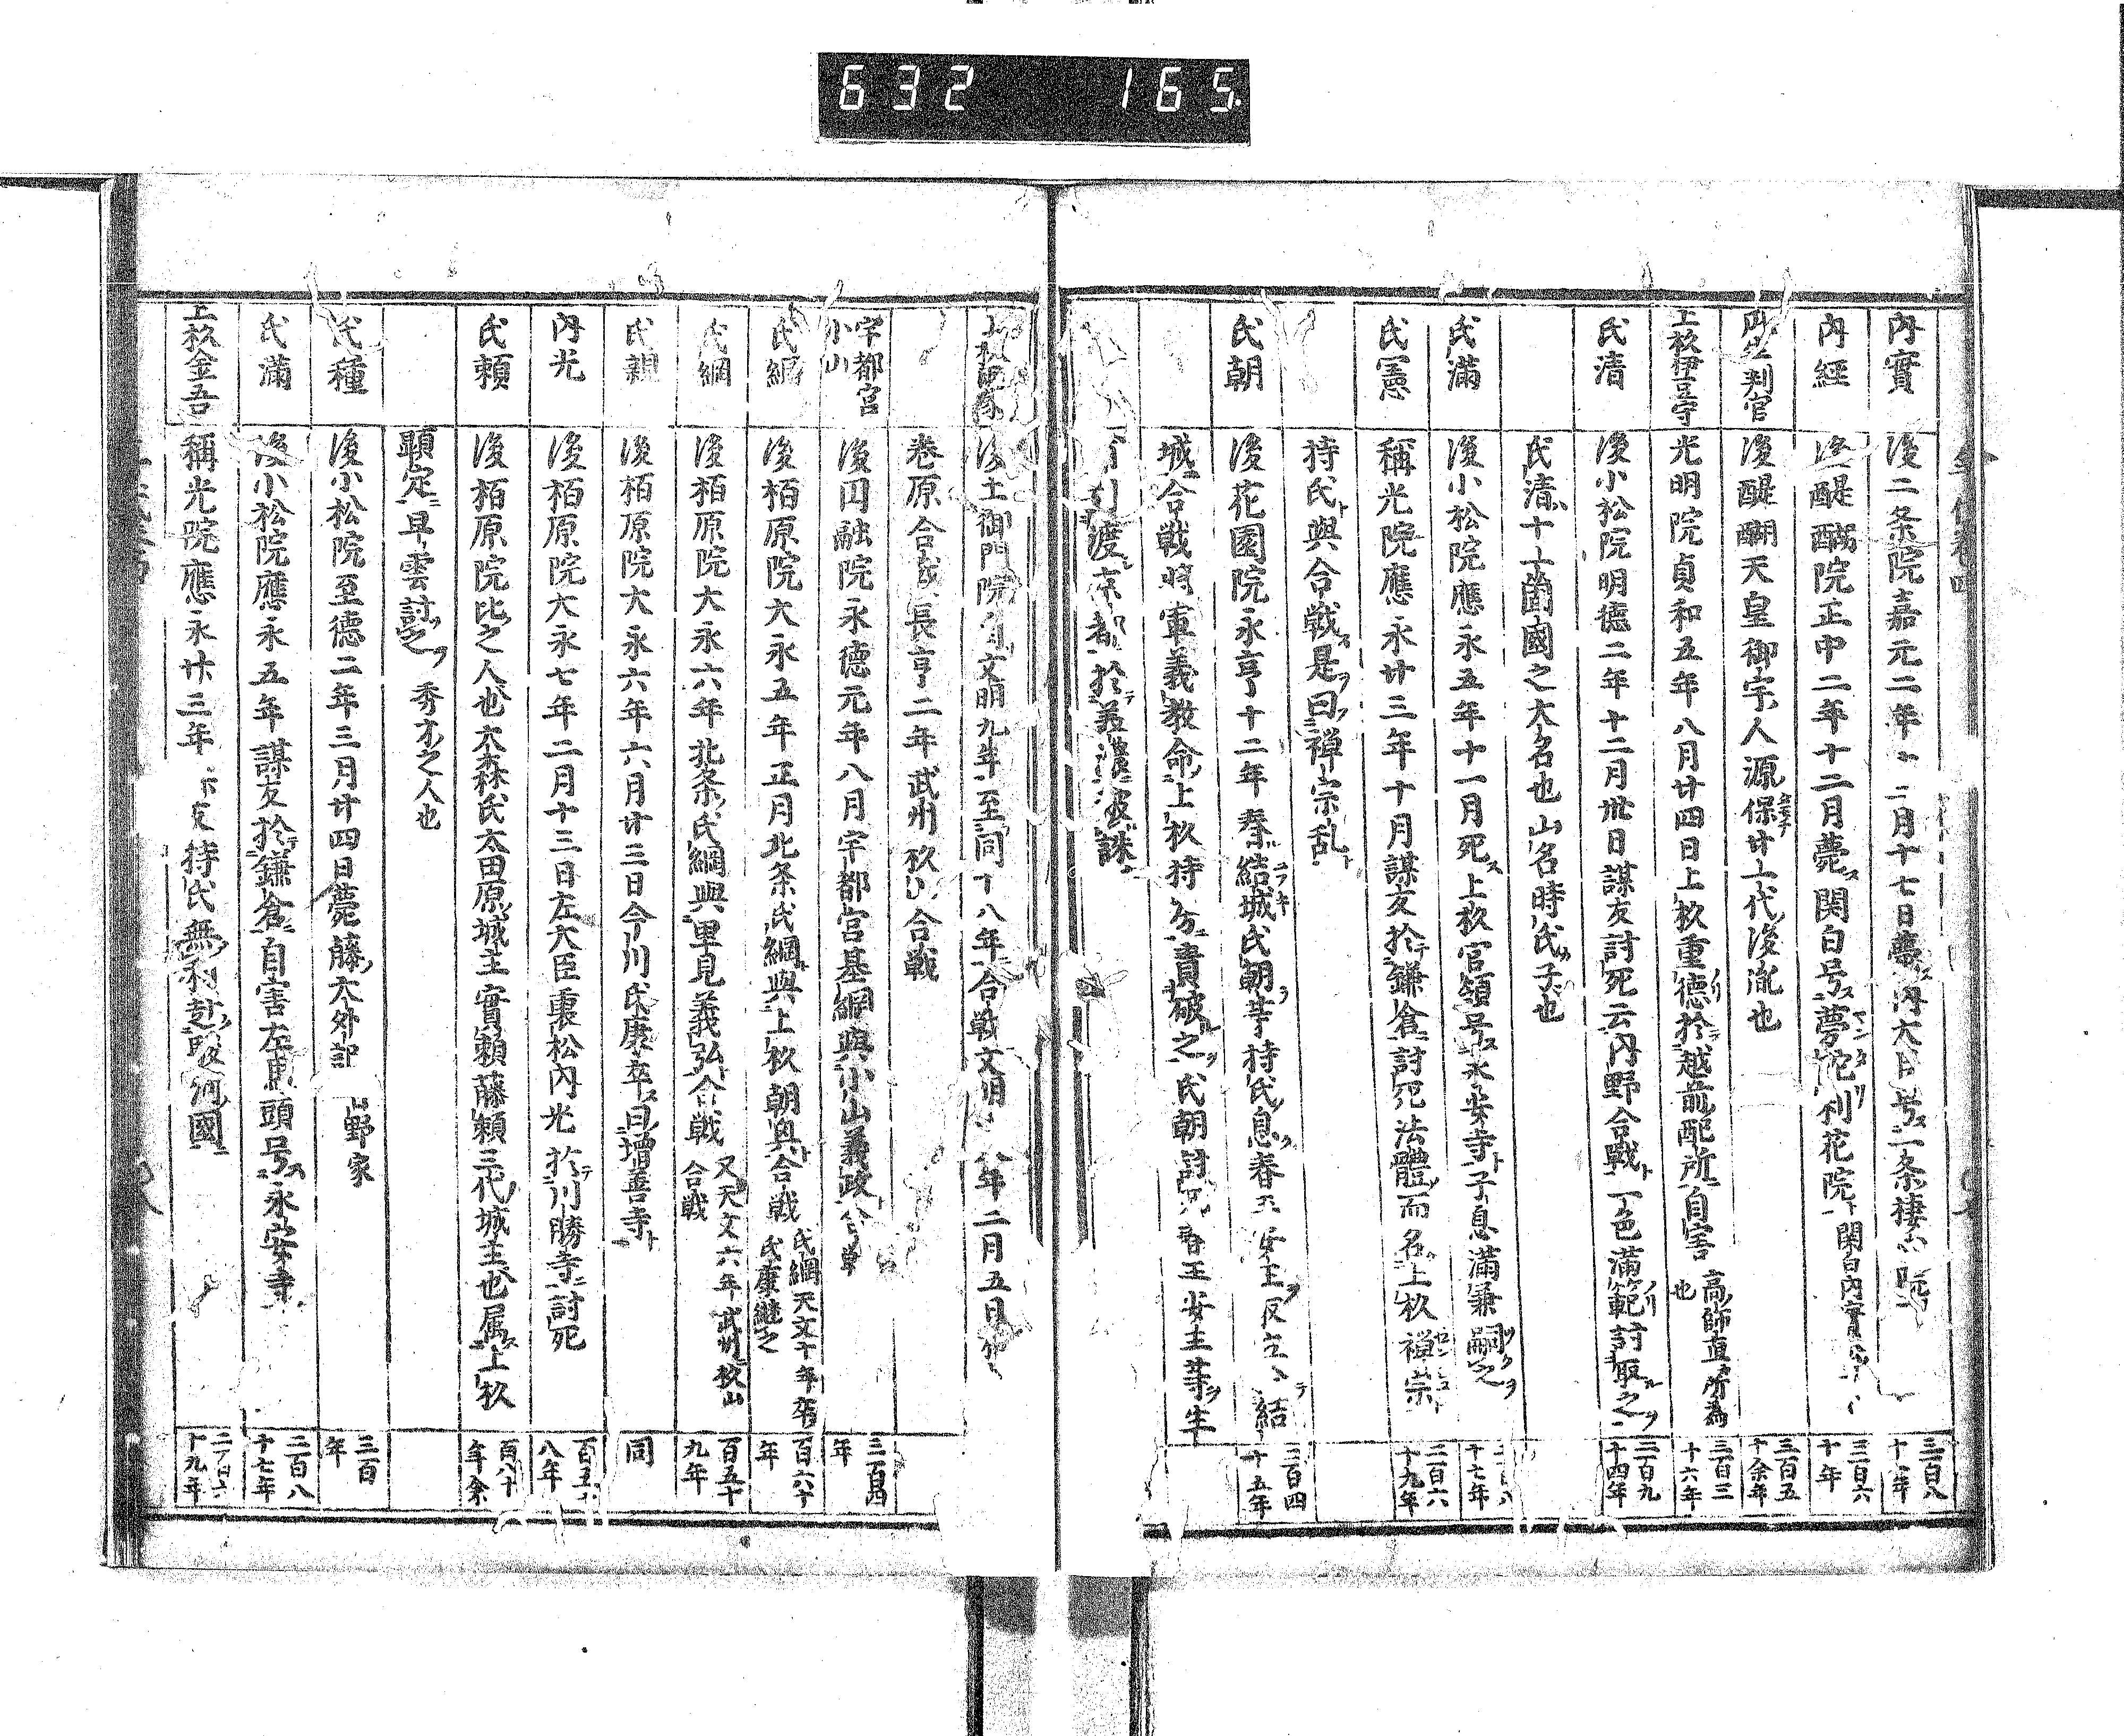 632 165
内實 後二条院嘉元二年十二月十七日薨内大臣号一条棲心院 三百八十一年
内経 後醍醐院正中二年十二月薨関白号夢陀利花院 関白内實 三百六十年
判官 後醍醐天皇御宇人源保廿上代後胤也 三百五十余年
上杦伊豆守 光明院貞和五年八月廿四日上杦重德於越前配所自害 高師直所為也 三百三十六年
氏清 後小松院明德二年十二月丗日謀反討死云内野合戦一色満範討取之 二百九十四年
氏清十一箇國之大名也山名時氏子也
氏滿 後小松院應永五年十一月死上杦官領号永安寺子息満兼嗣之 十七年
氏憲 稱光院應永廿三年十月謀反於鎌倉討死法體而名上杦禅宗 二百六十九年
持氏與合戦是曰禅宗乱
氏朝 後花園院永亨十二年春結城氏朝等持氏息春王安王 結 二百四十五年
城合戦將軍義教命上杦持 責破之氏朝討死春王安王等生
引渡京都於 濃被誅
後土御門院 文明九年至同十八年合戦文明 八年二月五日
巻原合戦長亨二年武州杦山合戦
宇都宮 小山 後円融院永德元年八月宇都宮基綱與小山義政合戦 三百四年
氏綱 後栢原院大永五年正月北条氏綱與上杦朝興合戦 氏綱天文十年卒 氏康継之 百六十年
氏綱 後栢原院大永六年北条氏綱與里見義弘合戦 又天文六年武州杦山合戦 百五十九年
氏親 後栢原院大永六年六月廿三日今川氏康卒曰増善寺 同
内光 後栢原院大永七年二月十三日左大臣裏松内光 於川勝寺討死 百五十八年
氏頼 後栢原院比之人也大森氏太田原城主實頼藤頼三代城主也属上杦 百八十年余
顕定早雲討之 秀才之人也
氏種 後小松院至德二年三月廿四日薨藤大外記 野家 三百年
氏滿 後小松院應永五年謀反於鎌倉自害左馬頭号永安寺 二百八十七年
上杦金吾 稱光院應永廿三年 持氏無利赴駿河國 十九年